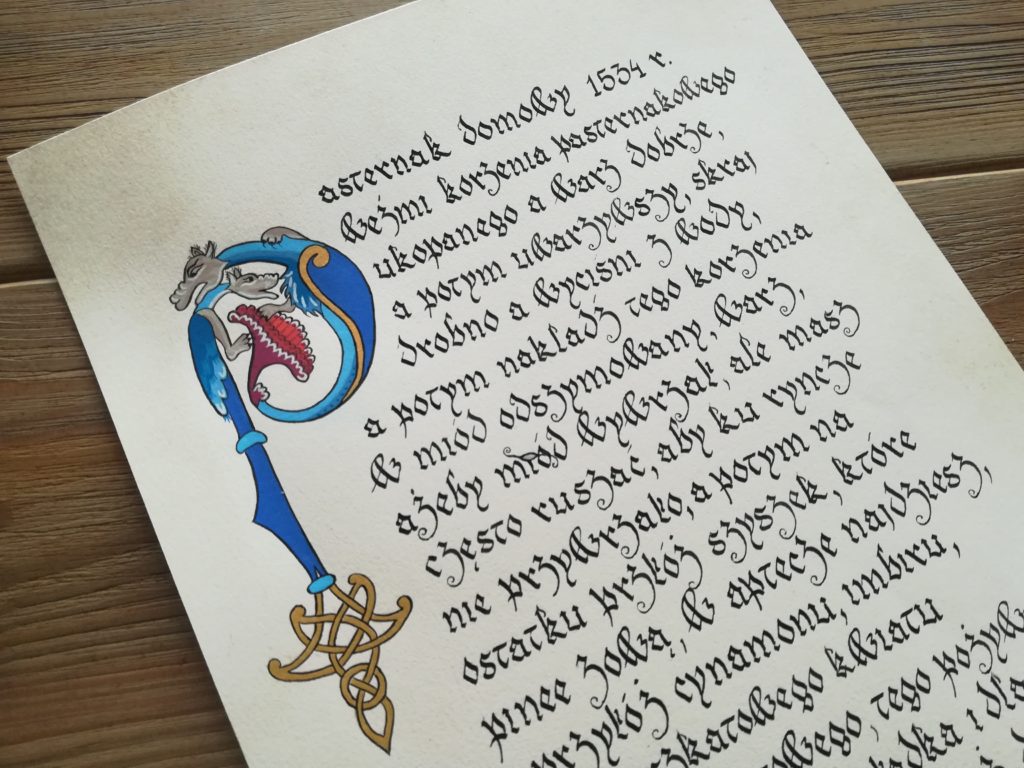 Pasternak domowy 1534 r.
Weźmi korzenia pasternakowego
ukopanego a warz dobrze,
a potym uwarzywszy, skraj
drobno a wyciśni z wody,
a potym nakładź tego korzenia
w miód odszymowany, warz,
ażeby miód wywrzał, ale masz
często ruszać, aby ku ryncze
nie przywrzało, a potym na
ostatku przkóż szyszek, które
pinee zową, w aptece najdziesz,
przykóż cynamonu, imbiru,
kwiatu
tego pożyw
i dla